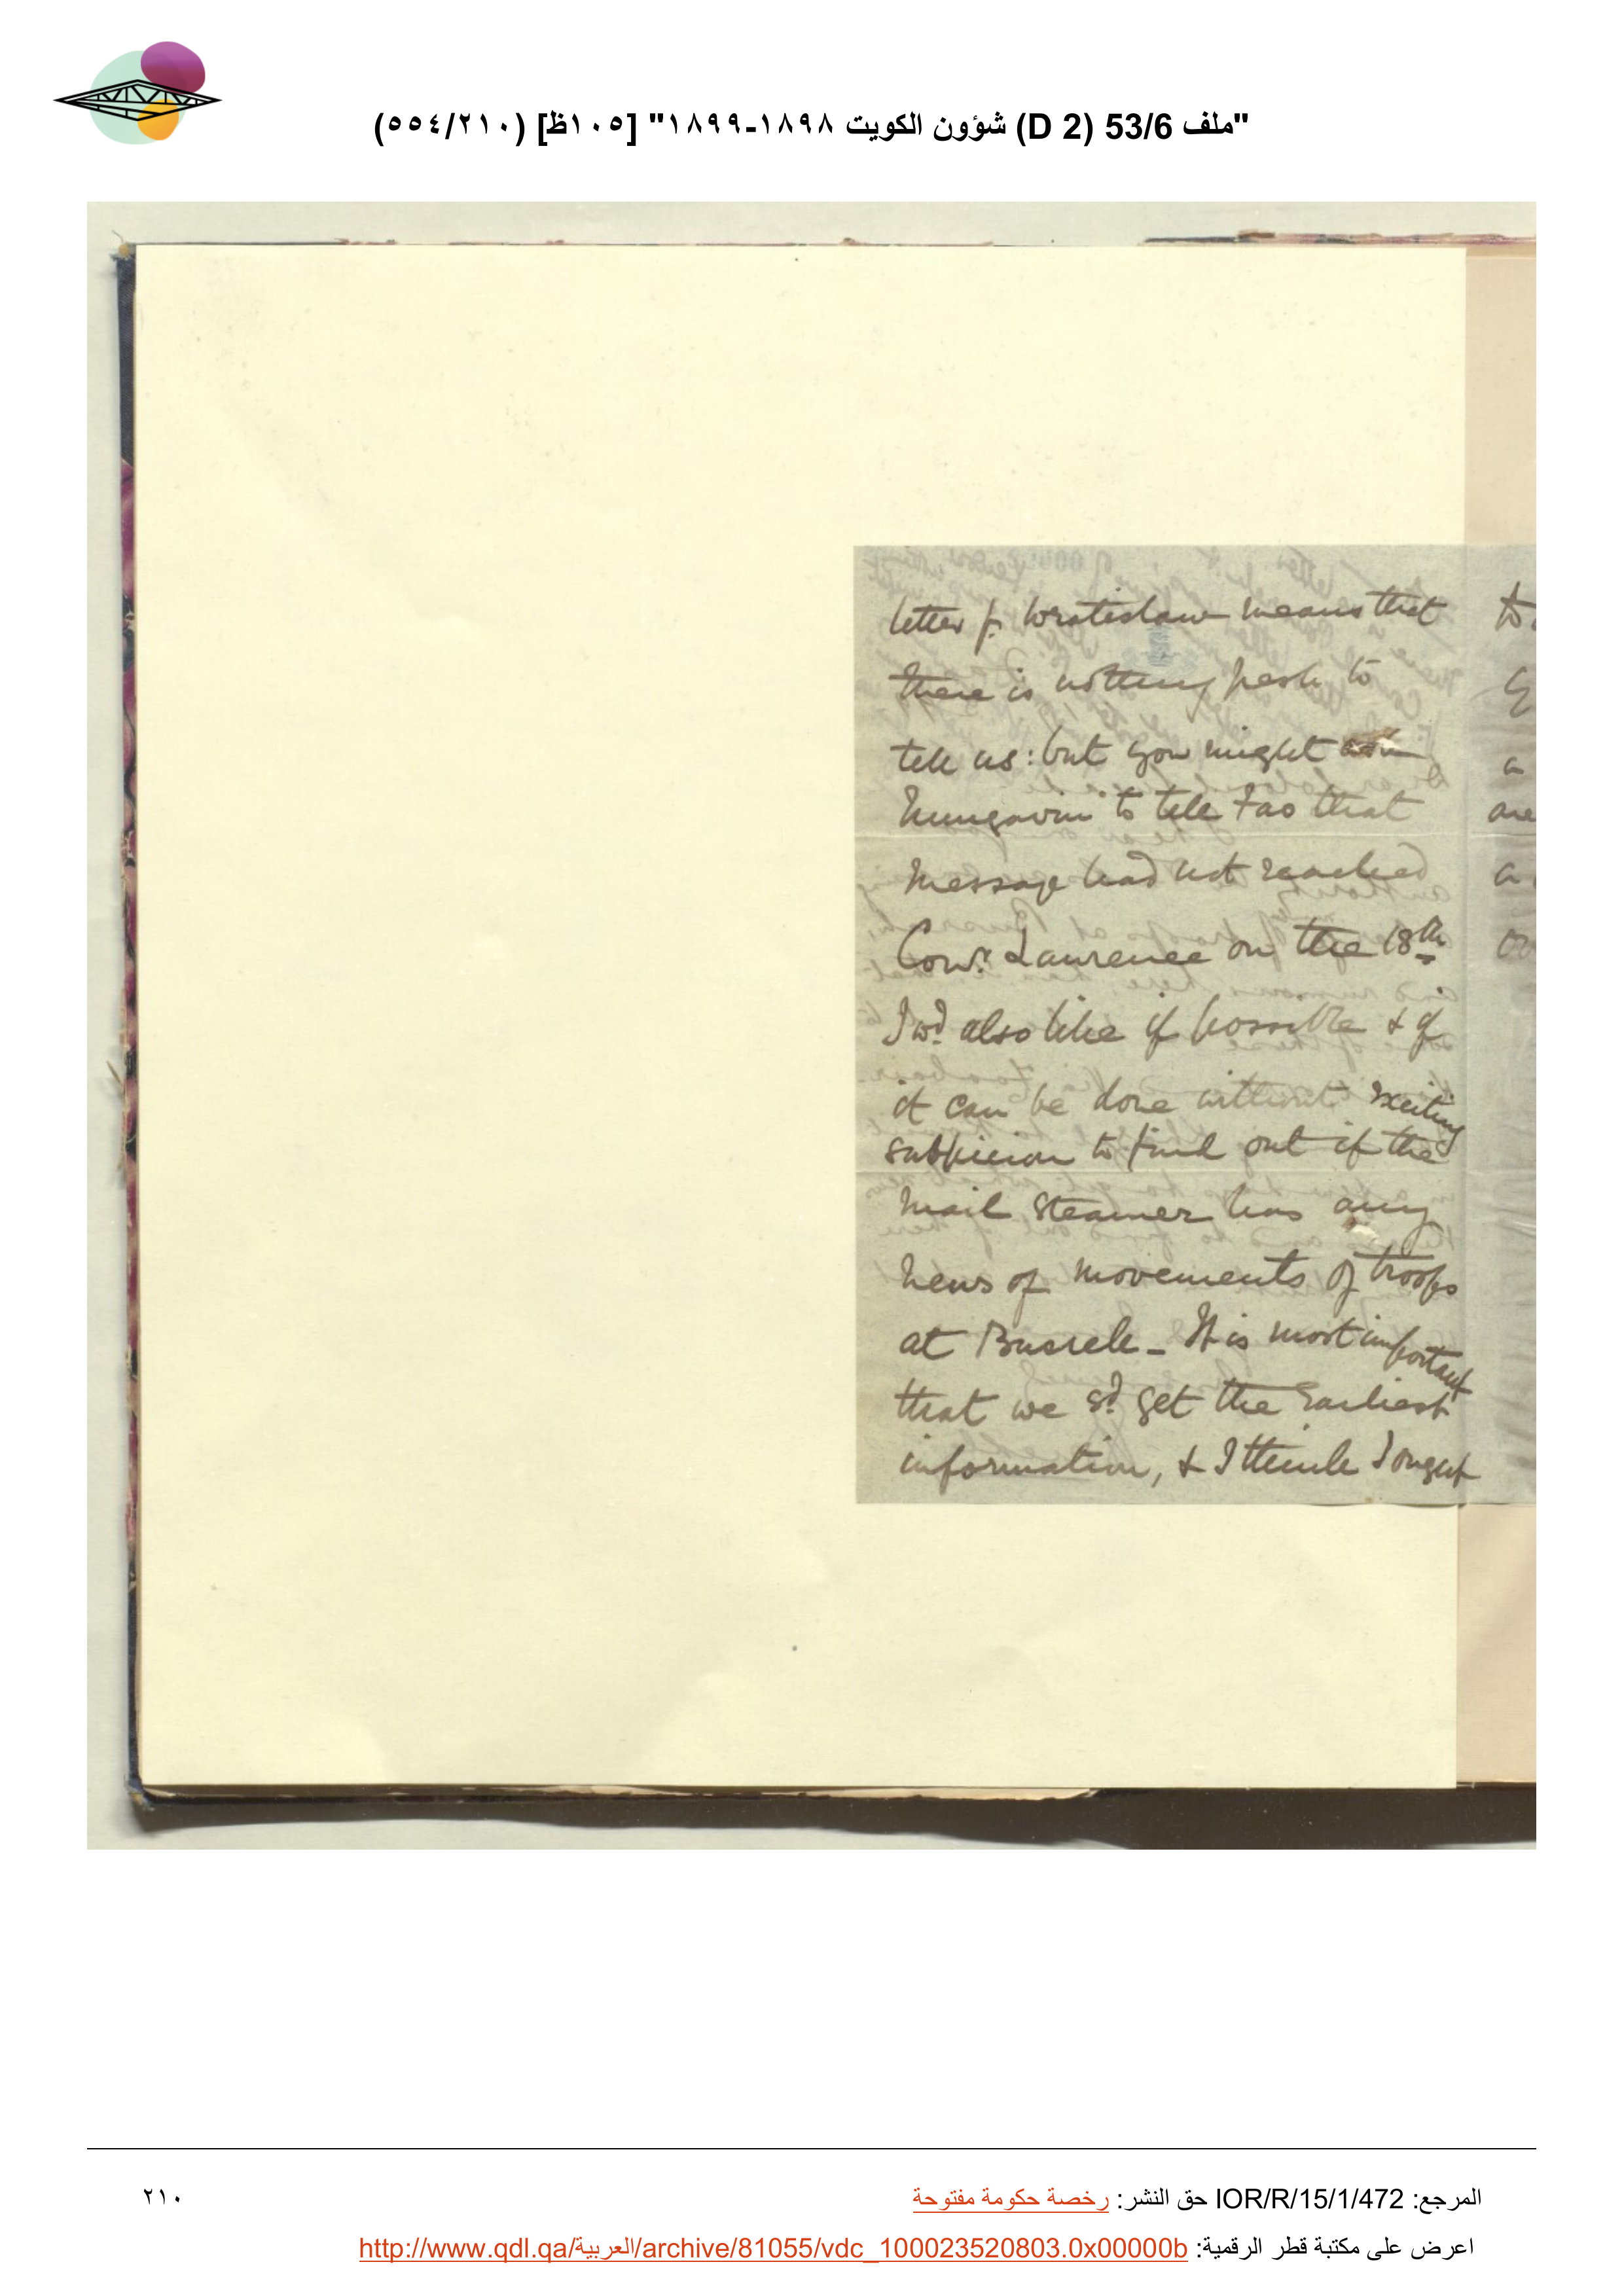 "ملف 53/6 (D 2) شؤون الكويت ١٨٩٨-١٨٩٩" [١٠٥ظ] (٢١٠/٥٥٤)
letter fr. Wratislaw means that
there is nothing fresh to
tell us: but you might
Mungavin to tell Fao that
message had not reached
Comr. Laurence on the 18th
I wd. also like if possible & if
it can be done without exciting
suspicion to find out if the
mail steamer has any
news of movements of troops
at Busreh - It is most important
that we sd. get the earliest
information, & I think I ought
to
a
are
a
المرجع: IOR/R/15/1/472 حق النشر: رخصة حكومة مفتوحة
٢١٠
اعرض على مكتبة قطر الرقمية: http://www.qdl.qa/العربية/archive/81055/vdc_100023520803.0x00000b